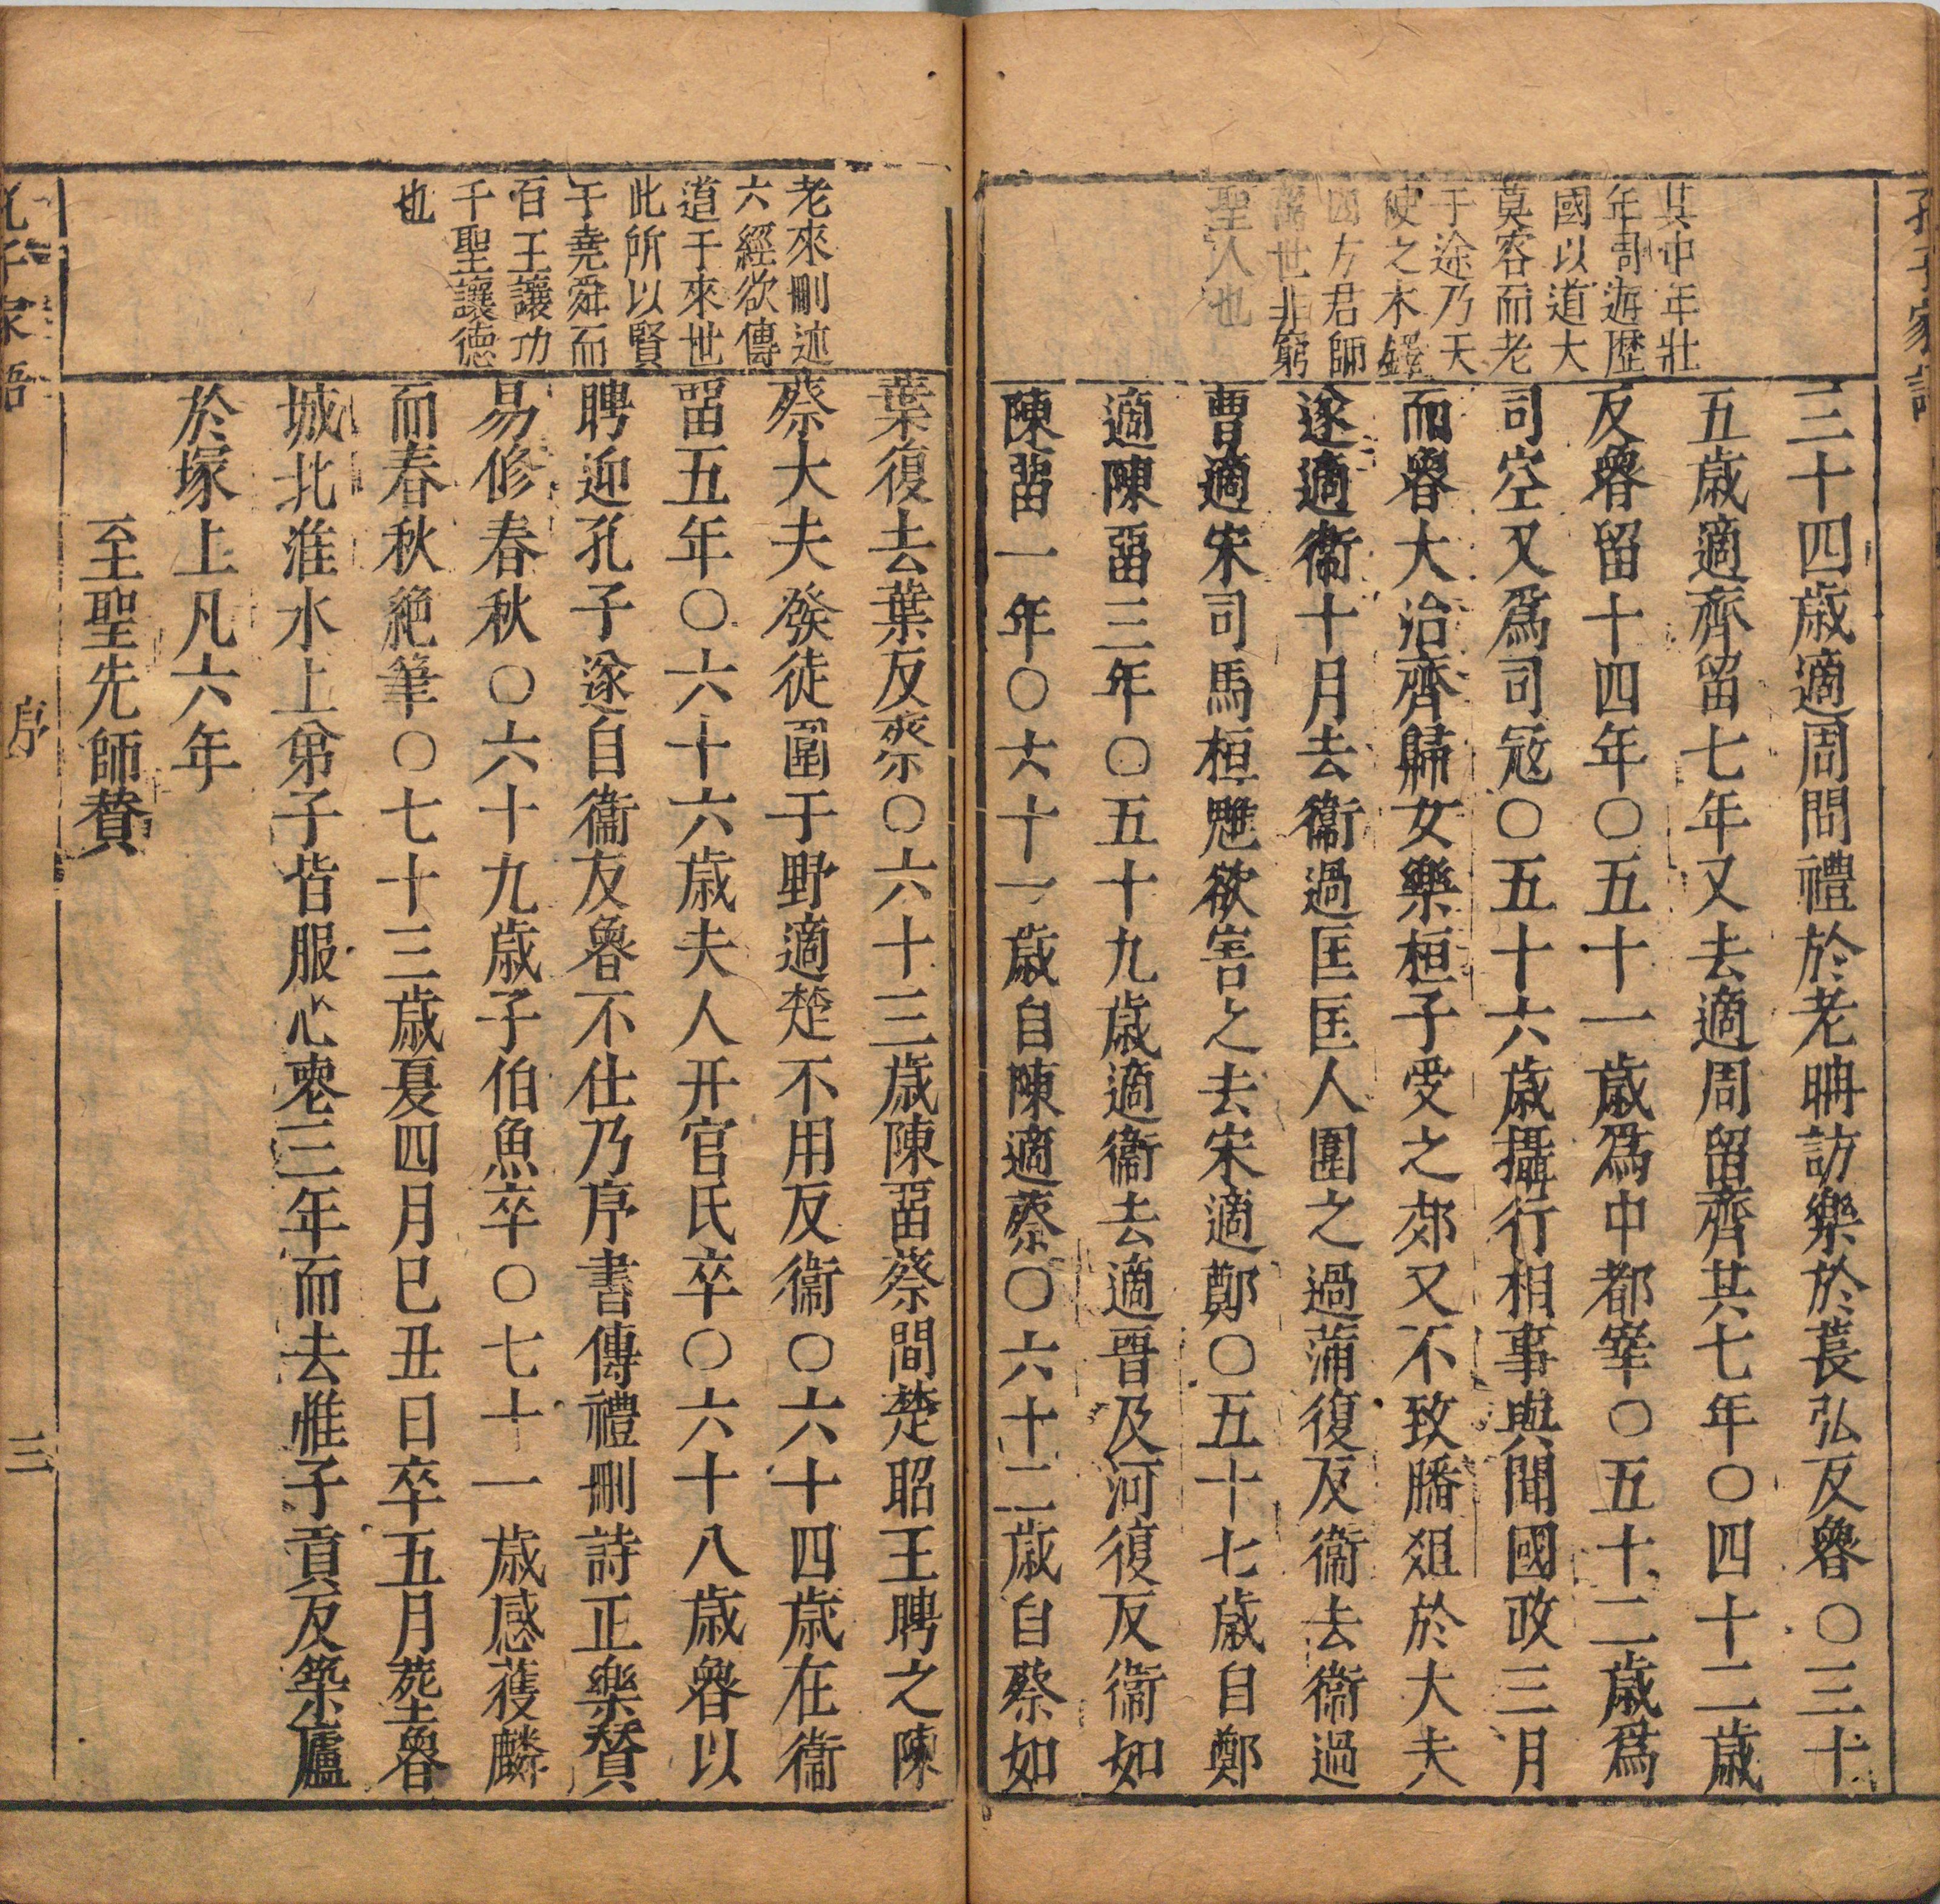 其中年壯
年周遊歷
國以道大
莫容而老
于途乃天
使之木鐸
四方君師
萬世非窮
聖人也
三十四歲適周問禮於老聃訪樂於萇弘反魯〇三十
五歲適齊留七年又去適周留齊共七年〇四十二歲
反魯留十四年〇五十一歲爲中都宰〇五十二歲爲
司空又爲司寇〇五十六歲攝行相事與聞國政三月
而魯大治齊歸女樂桓子受之郊又不致膰俎於大夫
遂適衞十月去衞過匡匡人圍之過蒲復反衞去衞過
曹適宋司馬桓魋欲害之去宋適鄭〇五十七歲自鄭
適陳畱三年〇五十九歲適衞去適晋及河復反衞如
陳畱一年〇六十一歲自陳適蔡〇六十二歲自蔡如
老來刪述
六經欲傳
道于來世
此所以賢
于堯舜而
百王讓功
千聖讓德
也
葉復去葉反蔡〇六十三歲陳畱蔡間楚昭王聘之陳
蔡大夫發徒圍于野適楚不用反衞〇六十四歲在衞
畱五年〇六十六歲夫人开官氏卒〇六十八歲魯以
聘迎孔子遂自衞反魯不仕乃序書傳禮刪詩正樂贊
易修春秋〇六十九歲子伯魚卒〇七十一歲感獲麟
而春秋絶筆〇七十三歲夏四月巳丑日卒五月塟魯
城北淮水上弟子皆服心喪三年而去惟子貢反築廬
於塚上凡六年
至聖先師贊
孔子家語
序
三